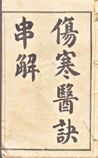 傷寒醫訣
串解